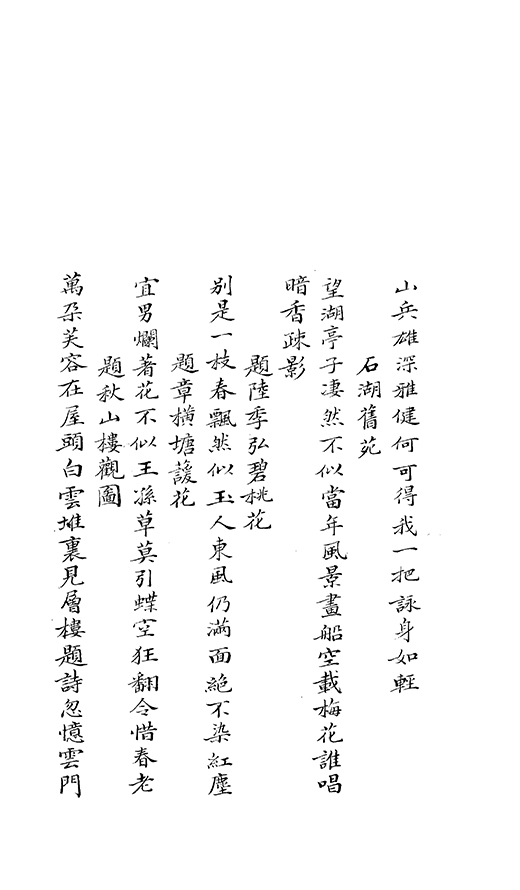 山兵雄深雅健何可得我一把詠身如輕
石湖舊苑
望湖亭子凄然不似當年風景畫船空載梅花誰唱
暗香疎影
題陸季弘碧桃花
别是一枝春飄然似玉人東風仍滿面絶不染紅塵
題章橫塘諼花
宜男爛著花不似王孫草莫引蝶空狂翻令惜春老
題秋山樓觀圖
萬朶芙容在屋頭白雲堆裏見層樓題詩忽憶雲門